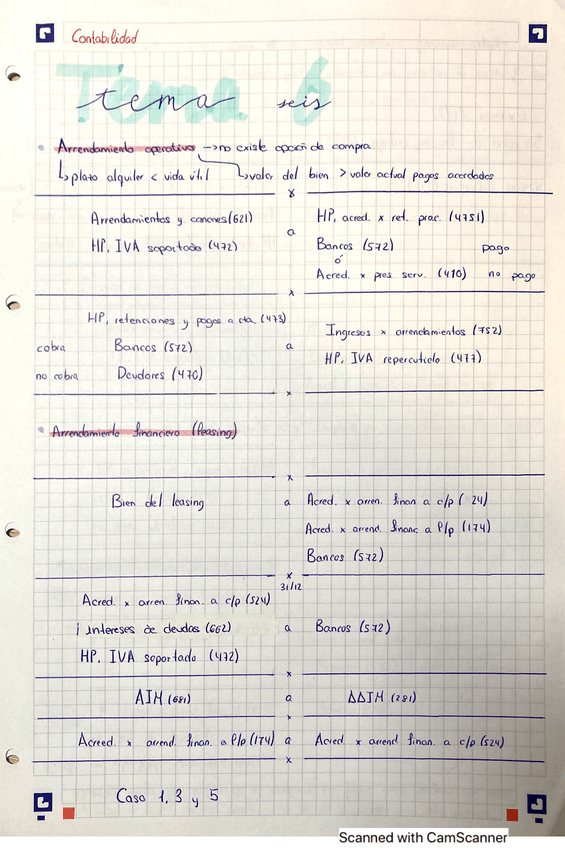 Contabilidad
Tema 6
tema seis
Arrendamiento operativo → no existe opción de compra
↳ plazo alquiler < vida útil ↳ valor del bien > valor actual pagos acordados
x
Arrendamientos y canones (621) a HP, acred. x ret. prac. (4751)
HP. IVA soportado (472) Bancos (572) pago
ó
Acred. x pres serv. (410) no pago
x
HP, retenciones y pagos a cta. (473) Ingresos x arrendamientos (752)
cobra Bancos (572) a HP. IVA repercutido (477)
no cobra Deudores (440)
x
Arrendamiento financiero (leasing)
x
Bien del leasing a Acred. x arren. finan a c/p ( 24)
Acred. x arrend. financ a l/p (174)
Bancos (572)
x
31/12
Acred. x arren. finan. a c/p (524)
intereses de deudas (662) a Bancos (572)
HP. IVA soportado (472)
x
AIM (681) a ΔΔIM (281)
x
Acreed. x arrend. finan. a l/p (174) a Acred x arrend finan. a c/p (524)
x
Caso 1, 3 y 5
Scanned with CamScanner